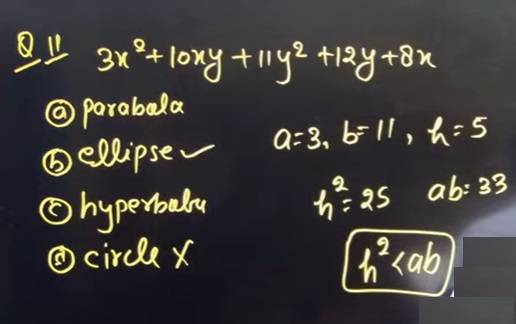 Q 11 3x²+10xy+11y²+12y+8x
ⓐ parabala
ⓑ ellipse✓
ⓒ hyperbabu
ⓓ circle X
a=3, b=11, h=5
h²=25 ab=33
h²<ab